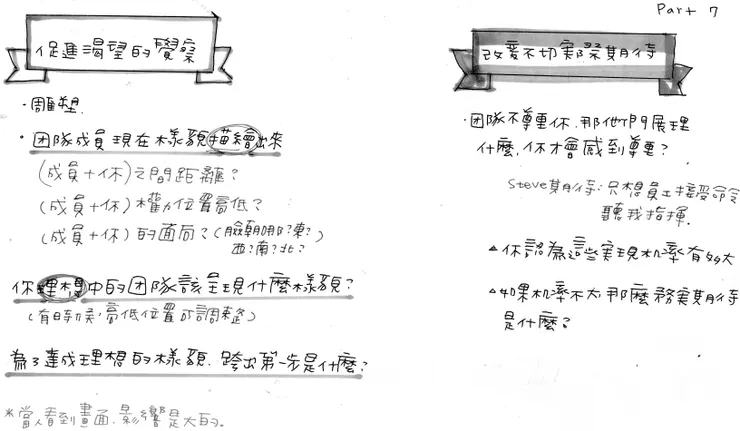 Part 7
促進渴望的覺察
・雕塑
・团隊成員現在樣貌描繪出來
(成員+你)之間距離?
(成員+你)權力位置高低?
(成員+你)的面向?(臉朝哪?東?
西?南?北?
你理想中的团隊該呈現什麼樣貌?
(有時候,高低位置可調整)
為了達成理想的樣貌,跨出第一步是什麼?
*當人看到畫面,影響是大的。
改變不切實際期待
・团隊不尊重你,那他們展理
什麼,你才會感到尊重?
Steve期待:只想員工接受命令
聽我指揮.
▲你認為這些實現机率有多大
▲如果机率不大,那麼務實期待
是什麼?